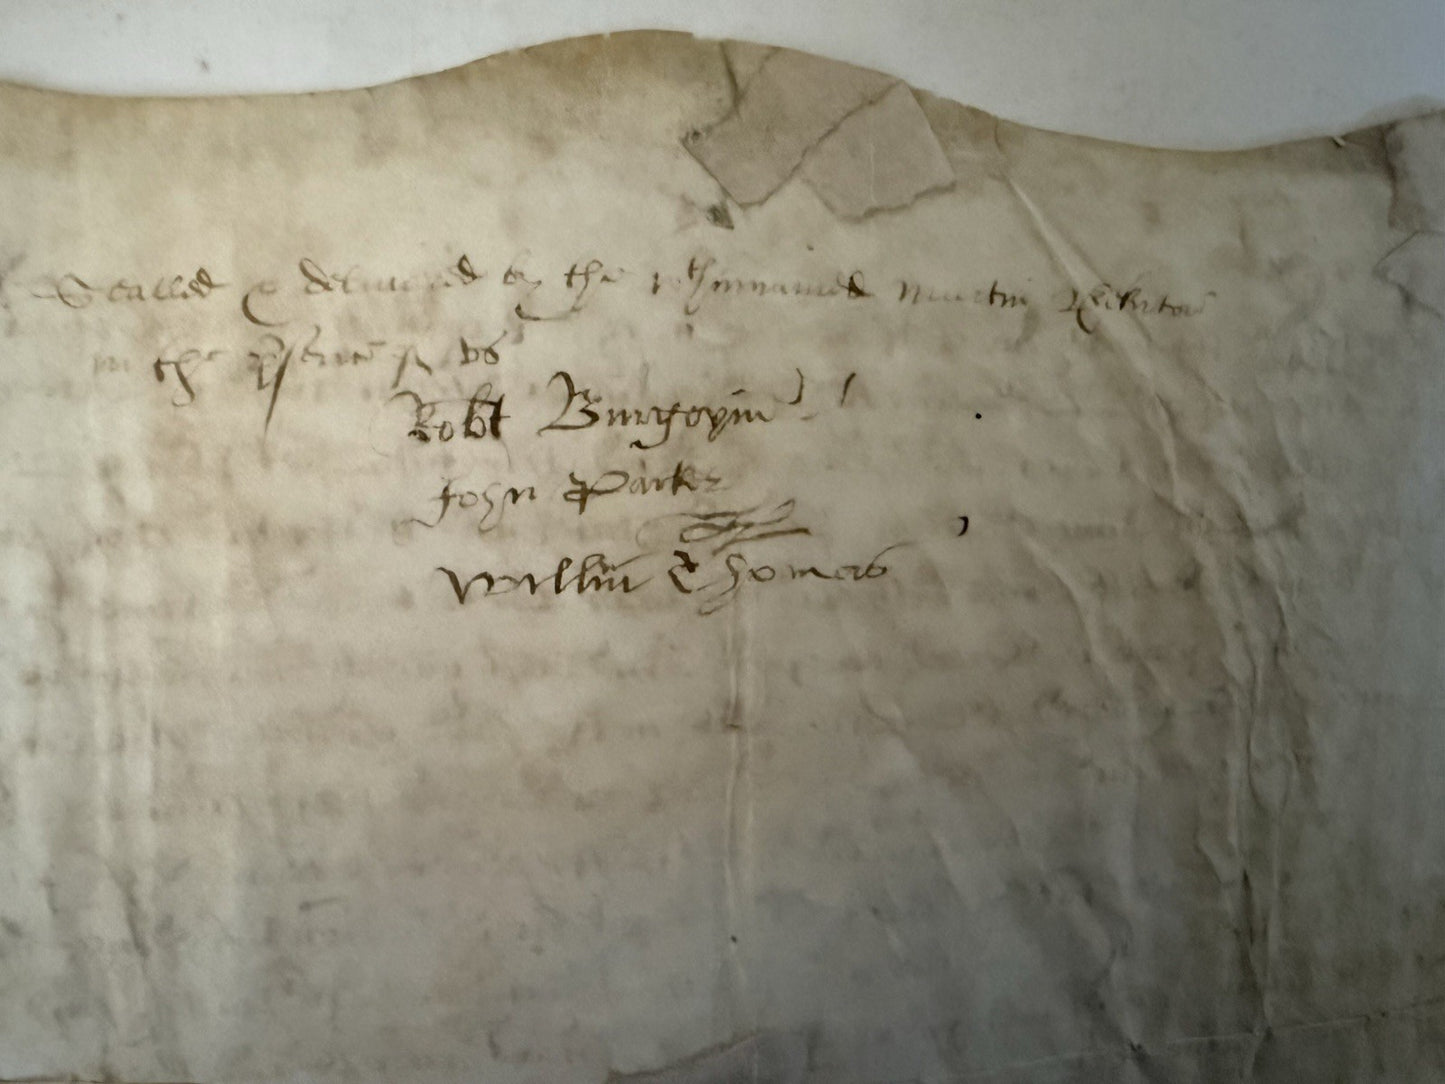 Sealled & delivered by the wthinnamed Martin
in the p'sence of vs
Robt Burgoyin
John Parker
Willm Thomers